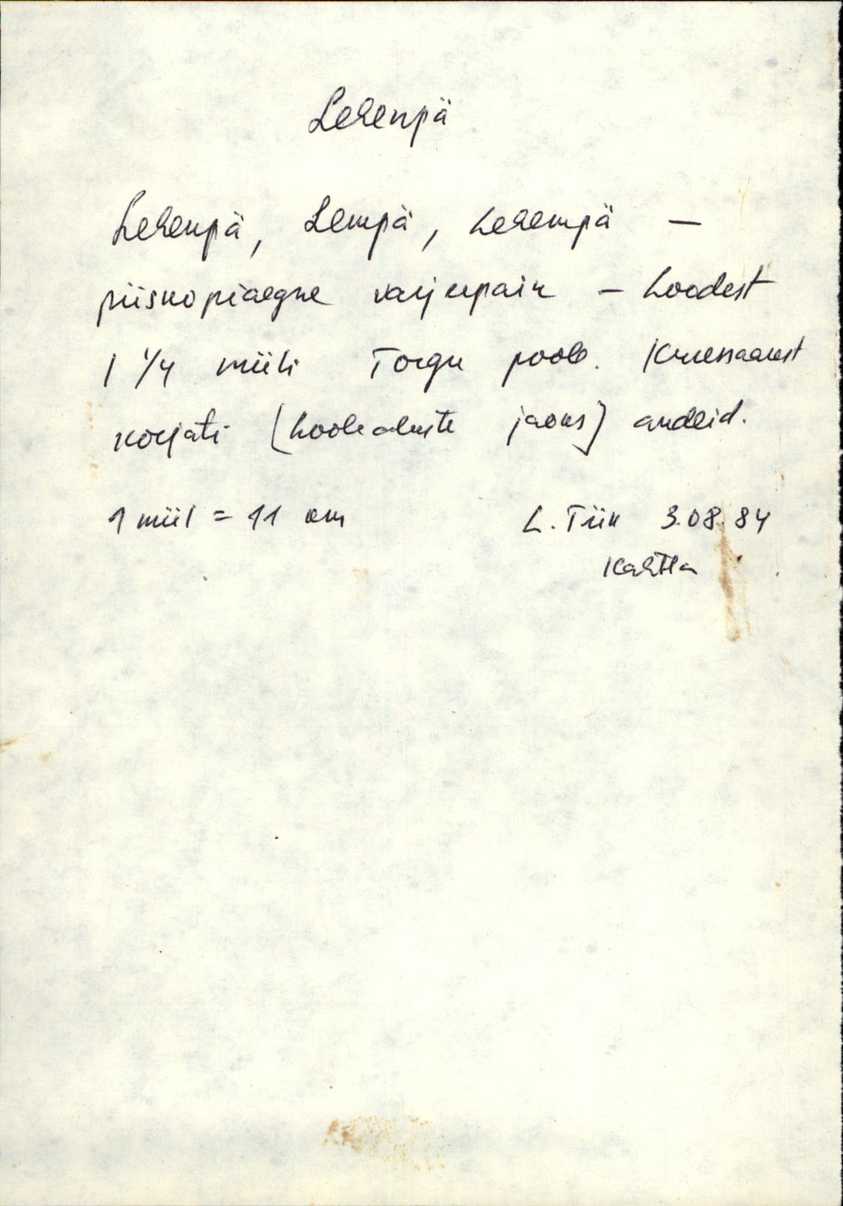 Lehenpä
Lehenpä, Lempä, Lehempä –
piiskopiaegne varjupaik – Loodest
1 1/4 miili Torgu poole. Kuressaarest
korjati (hoolealuste jaoks) andeid.
1 miil = 11 km
L. Tiik 3.08.84
Kahtla